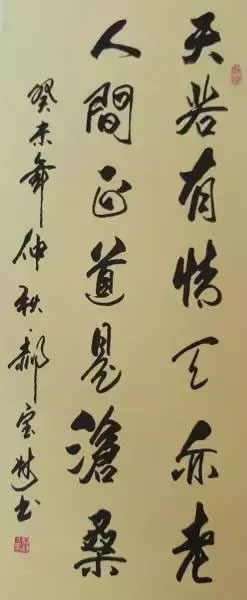 天若有情天亦老
人間正道是滄桑
癸未年仲秋郝宝
书